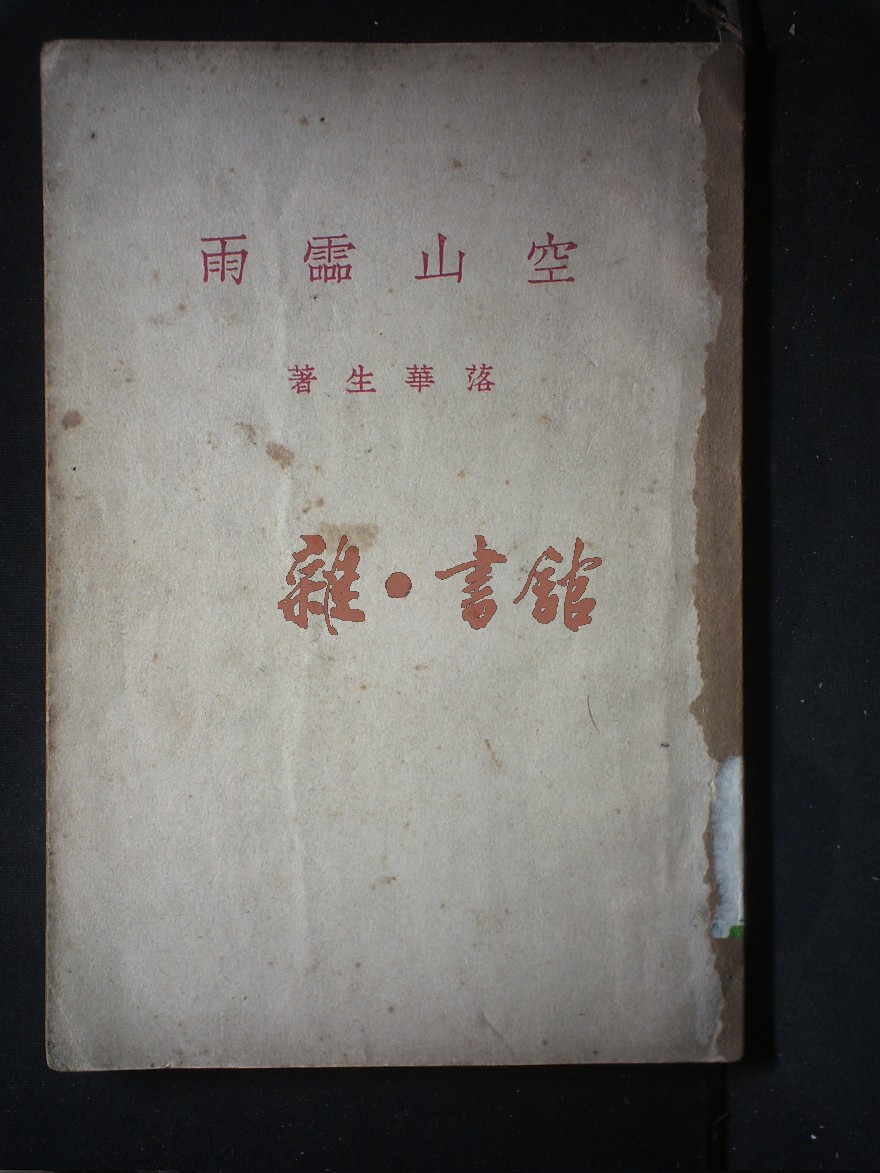 空山霝雨
落華生著
雜·書館